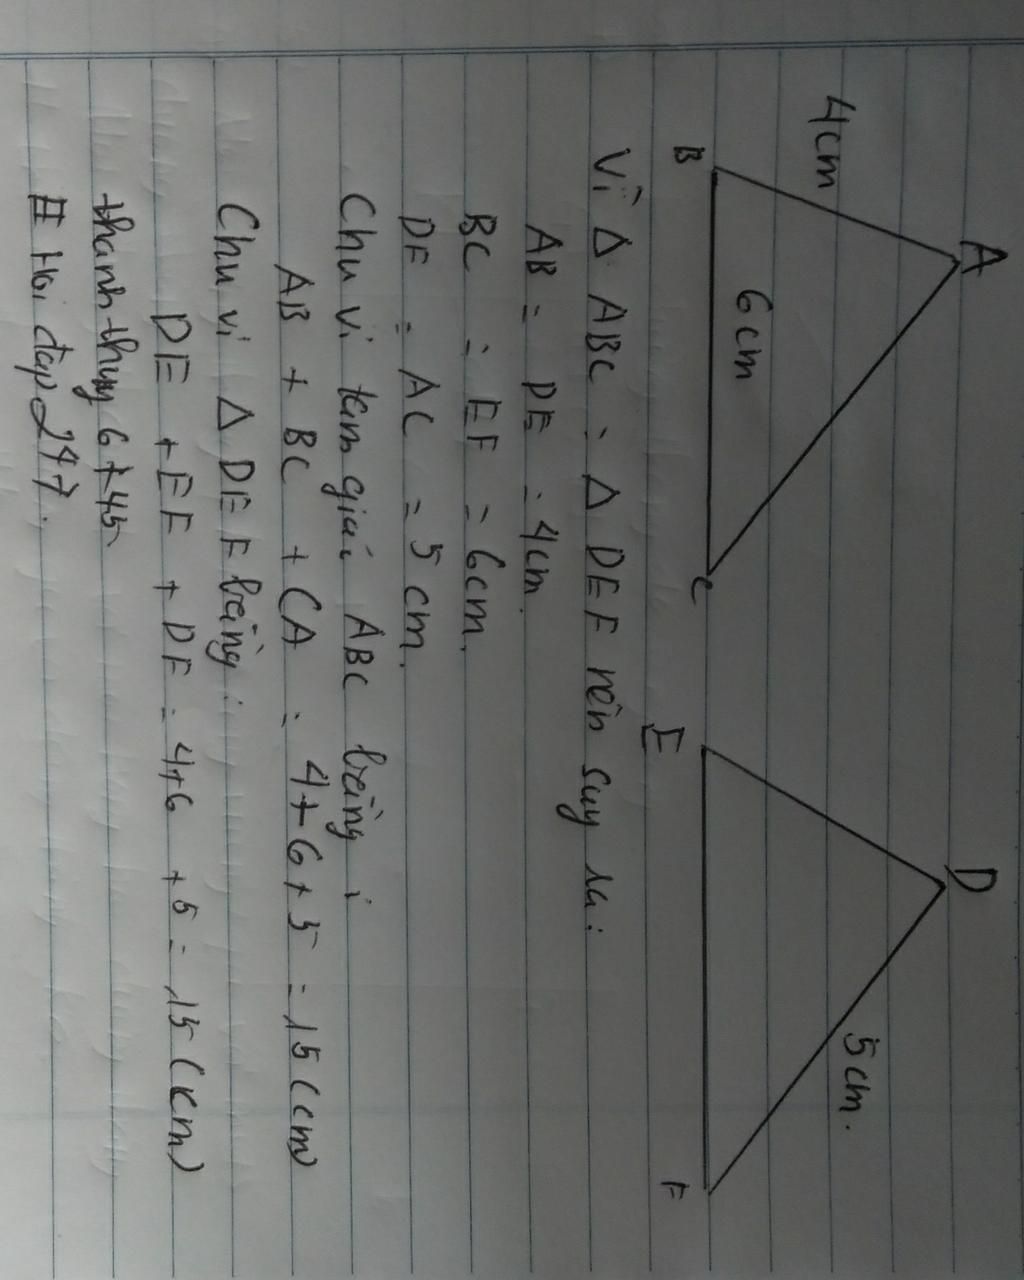 A
D
4cm
5cm.
6cm
B
C
E
F
Vì Δ ABC = Δ DEF nên suy ra:
AB = DE = 4cm.
BC = EF = 6cm.
DF = AC = 5cm.
Chu vi tam giác ABC bằng:
AB + BC + CA = 4+6+5 = 15(cm)
Chu vi Δ DEF bằng:
DE + EF + DF = 4+6+5 = 15(cm)
thanhthuy6745
# Hỏi đáp 247.